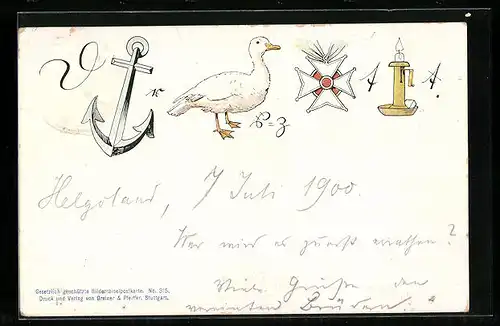 Helgoland, 7 Juli 1900.
Wer wird es zuerst errathen?
Viele Grüße den
vereinten Brüdern!
Gesetzlich geschützte Bilderrätselpostkarte. No. 315.
Druck und Verlag von Greiner & Pfeiffer, Stuttgart.